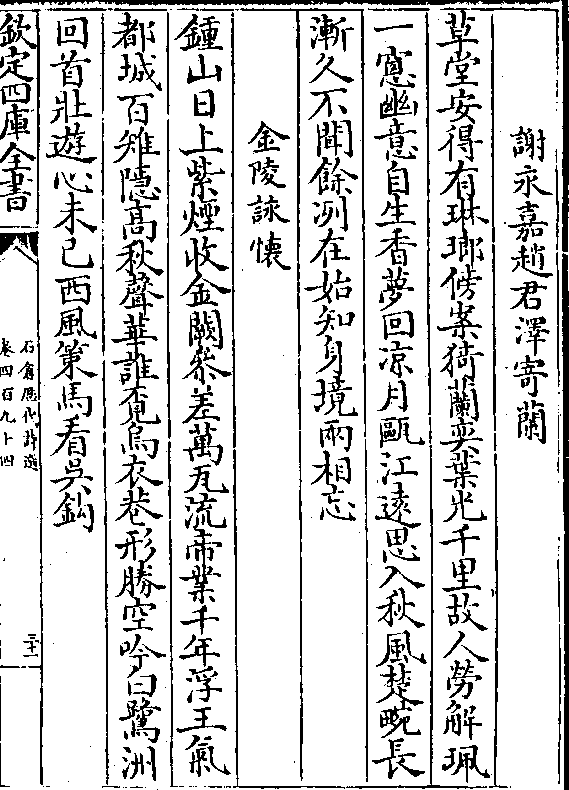 謝永嘉趙君澤寄蘭
草堂安得有琳瑯傍案猗蘭奕葉光千里故人勞解珮
一窻幽意自生香夢回凉月甌江遠思入秋風楚畹長
漸久不聞餘冽在始知身境兩相忘
金陵詠懷
鍾山日上紫煙收金闕參差萬瓦流帝業千年浮王氣
都城百雉隱高秋聲華誰覓烏衣巷形勝空吟白鷺洲
回首壯遊心未已西風策馬看吳鈎
欽定四庫全書
石倉歷代詩選
卷四百九十四
三十